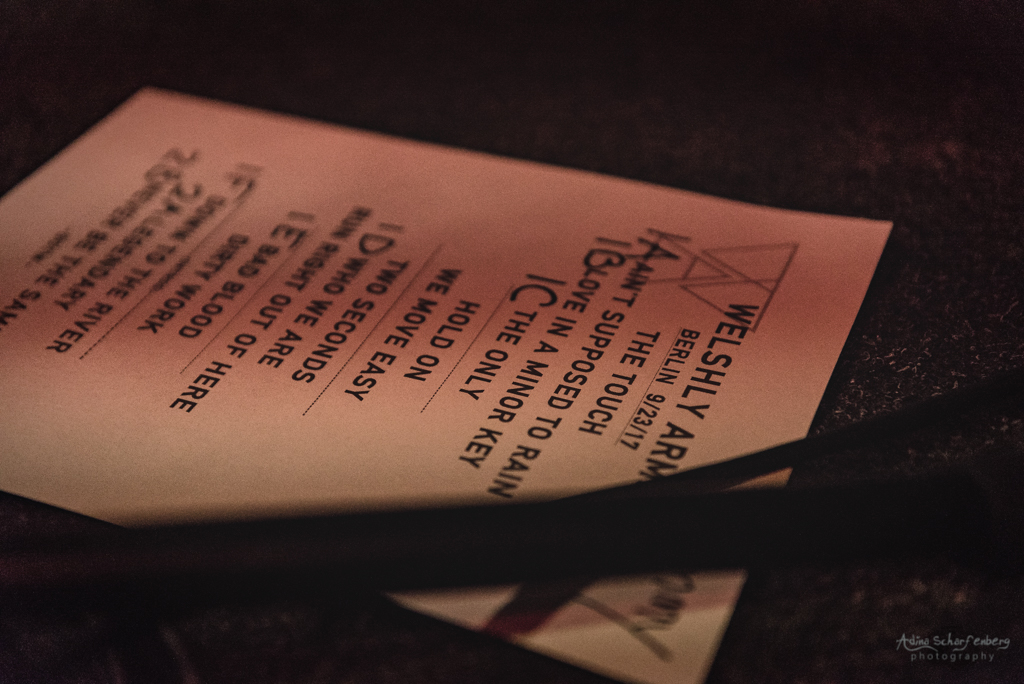 WELSHLY ARM
BERLIN 9/23/17
THE TOUCH
1A AIN'T SUPPOSED TO RAIN
1B LOVE IN A MINOR KEY
1C THE ONLY
HOLD ON
WE MOVE EASY
TWO SECONDS
1D WHO WE ARE
RUN RIGHT OUT OF HERE
1E BAD BLOOD
DIRTY WORK
1F DOWN TO THE RIVER
2A LEGENDARY
BE THE SAM
Adina Scharfenberg
photography